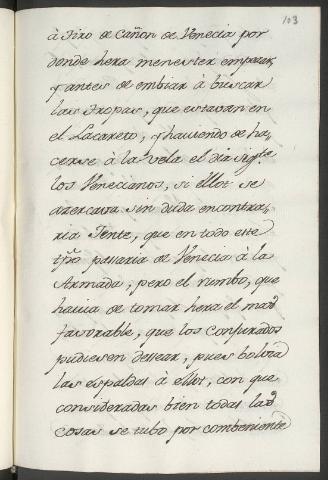 103
à Tiro de Cañon de Venecia por
donde hera menester empezar,
y antes de embiar à buscar
las Tropas, que estavan en
el Lazareto, y haviendo de ha-
cerse à la vela el dia sigte
los Venecianos, si èllos se
azercava sin duda encontra-
ria Jente, que en todo este
tpo pasaria de Venecia à la
Armada; pero el rumbo, que
havia de tomar hera el mas
favorable, que los Conjurados
pudiesen dessear, pues bolvia
las espaldas à èllos, con que
consideradas bien todas las
cosas se tubo por combeniente